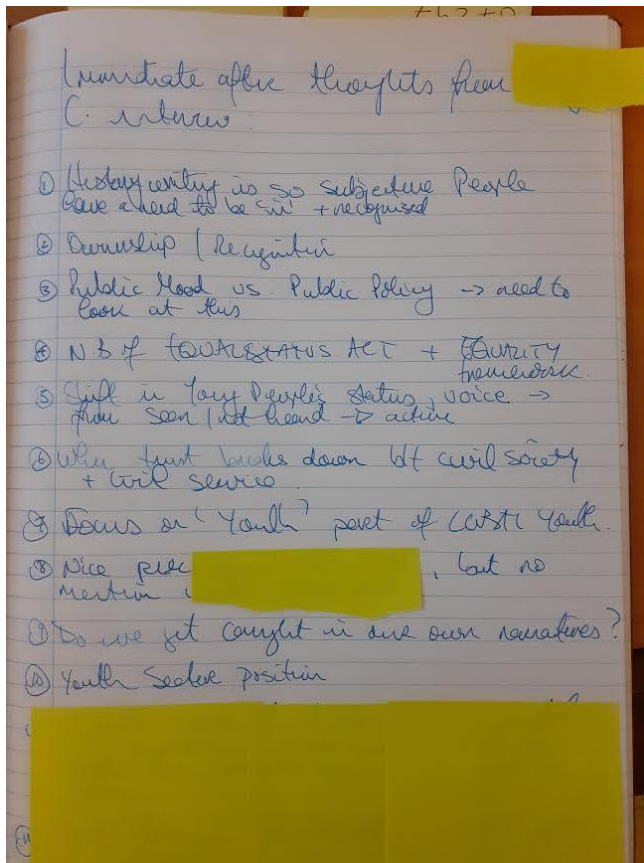 Immediate after thoughts from
C. interview
① History writing is so subjective People
have a need to be 'in' + recognised
② Ownership / Recognition
③ Public Mood vs. Public Policy → need to
look at this
④ NB of EQUAL STATUS ACT + EQUALITY
framework.
⑤ Shift in Young People's status, voice →
from seen / not heard → active
⑥ When trust breaks down bt civil society
+ civil service.
⑦ Focus on 'Youth' part of LGBTI Youth.
⑧ Nice , but no
mention
⑨ Do we get caught in our own narratives?
⑩ Youth Sector position